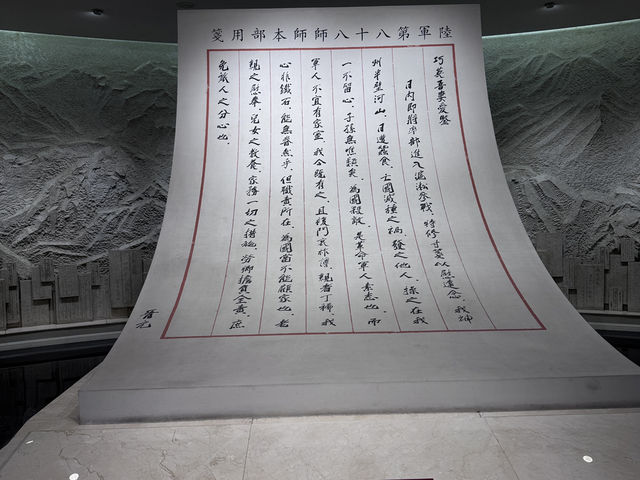 陸軍第八十八師師本部用箋
巧英吾妻愛鑒
日内即將率部進入滬淞參戰、特修寸箋以慰遠念。我神
州半壁河山、日遭蠶食、亡國滅種之禍、發之他人、操之在我
一不留心、子孫無噍類矣、為國殺敵、是革命軍人素志也、而
軍人不宜有家室、我今既有之、且復門衰祚薄、親者丁稀、我
心非鐵石、能無眷然乎、但職責所在、為國當不能顧家也、老
親之慰奉、兒女之教養、家務一切之措施、勞卿擔負全責、庶
免旅人之分心也、
晉元